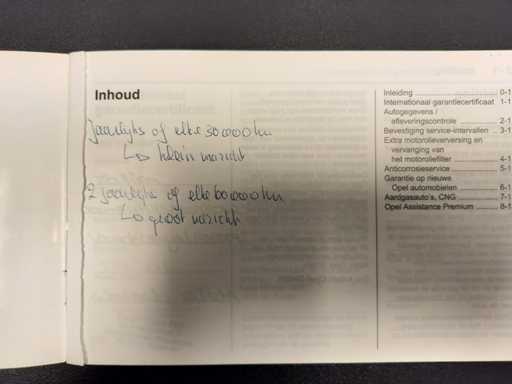 Inhoud
Jaarlijks of elke 30000km
↳ klein nazicht
2 jaarlijks of elke 60000km
↳ groot nazicht
Inleiding 0-1
Internationaal garantiecertificaat 1-1
Autogegevens /
afleveringscontrole 2-1
Bevestiging service-intervallen 3-1
Extra motorolieverversing en
vervanging van
het motoroliefilter 4-1
Anticorrosieservice 5-1
Garantie op nieuwe
Opel automobielen 6-1
Aardgasauto's, CNG 7-1
Opel Assistance Premium 8-1